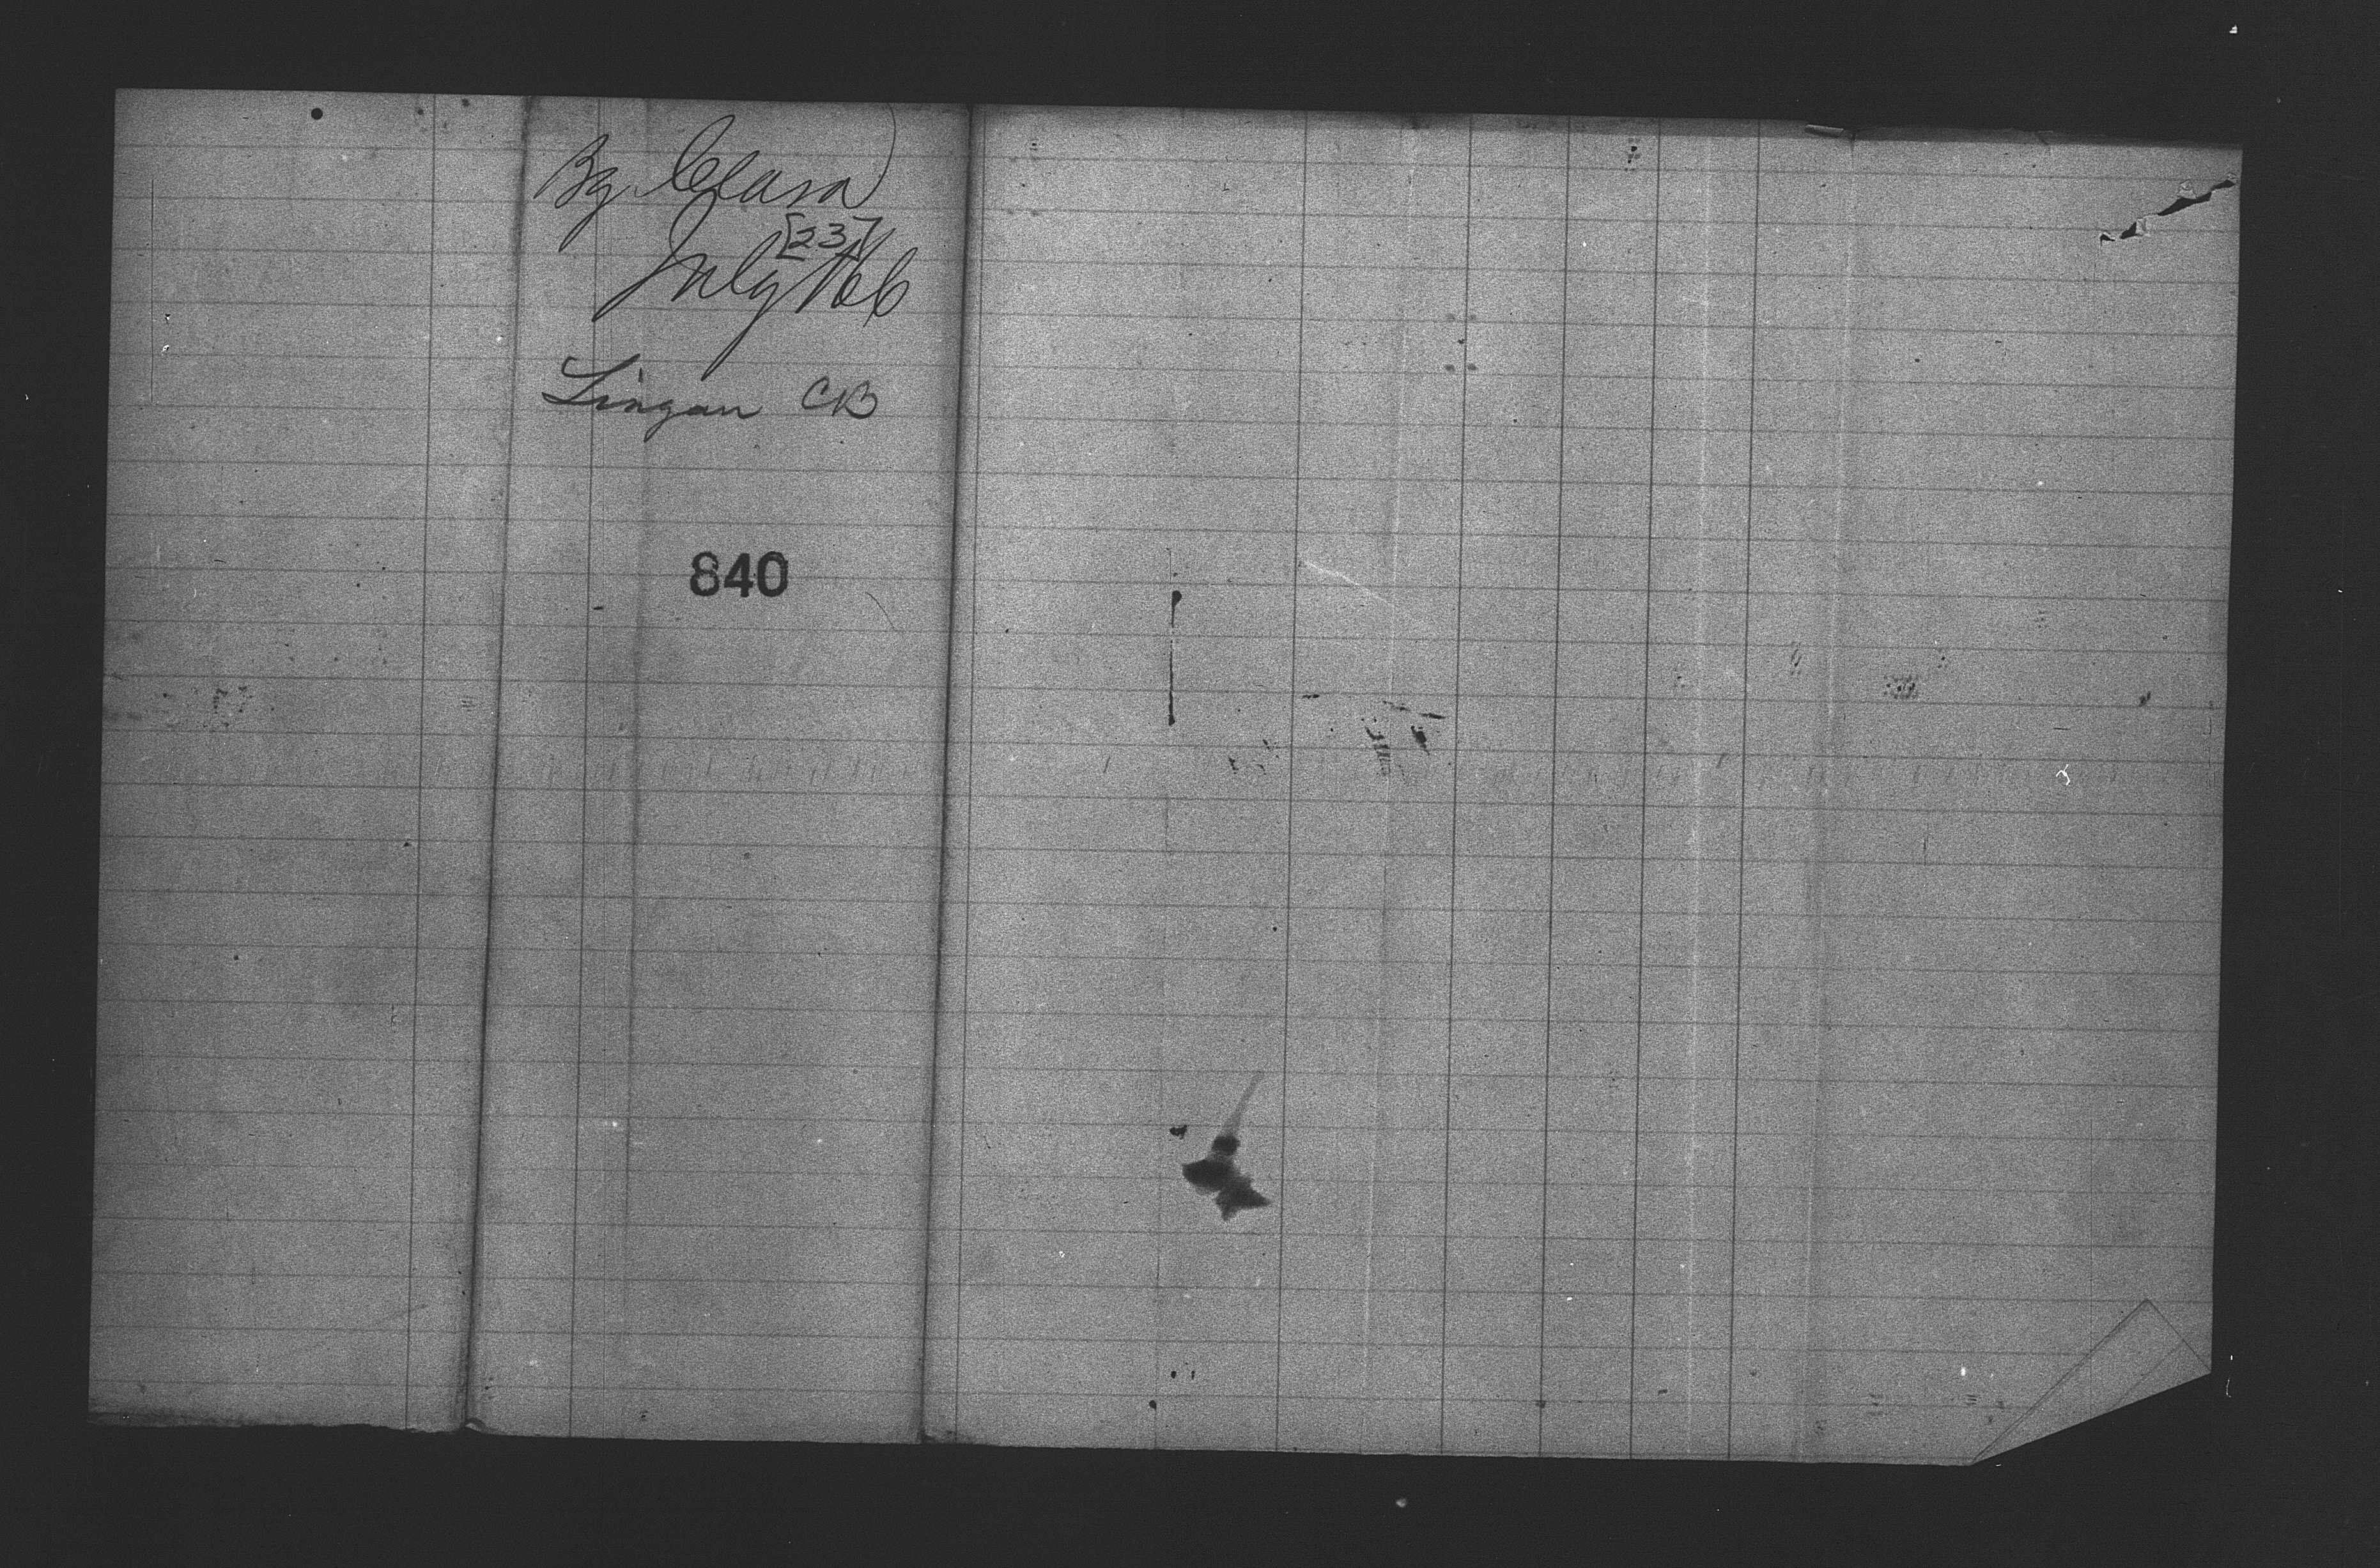 Bg. Clara
[23]
July /66
Lingan CB
840